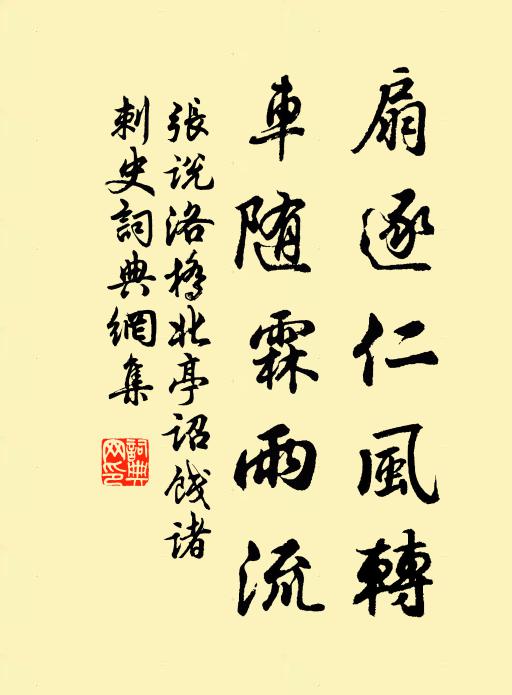 扇逐仁風轉
車随霖雨流
張說洛橋北亭詔餞諸
刺史詞典網集
詞典
网印